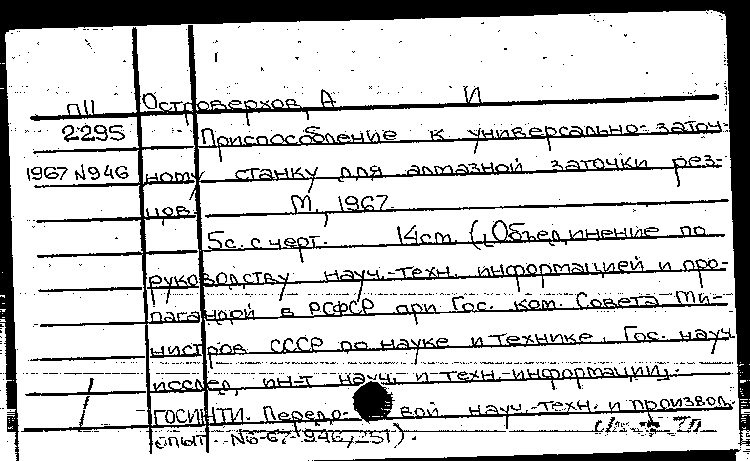 П11 Островерхов, А И
2295 Приспособление к универсально-заточ-
1967 N946 ному станку для алмазной заточки рез-
цов. М., 1967.
5с. с черт. 14см. (Объединение по
руководству науч.-техн. информацией и про-
пагандой в РСФСР при Гос. ком. Совета Ми-
нистров СССР по науке и технике. Гос. науч.
исслед. ин-т науч. и техн. информации.
ГОСИНТИ. Передовой науч.-техн. и производ.
опыт. N6-67-946/251).